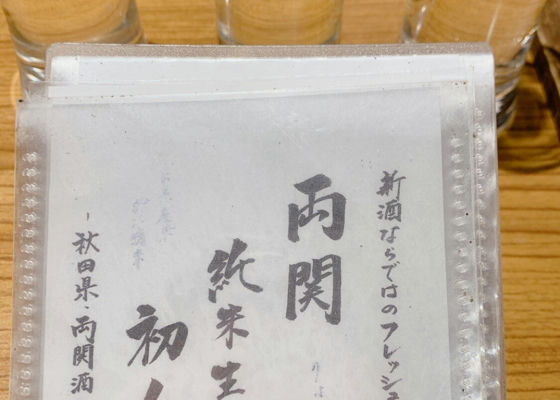 新酒ならではのフレッシュ
両関
純米生
初
-秋田県・両関酒